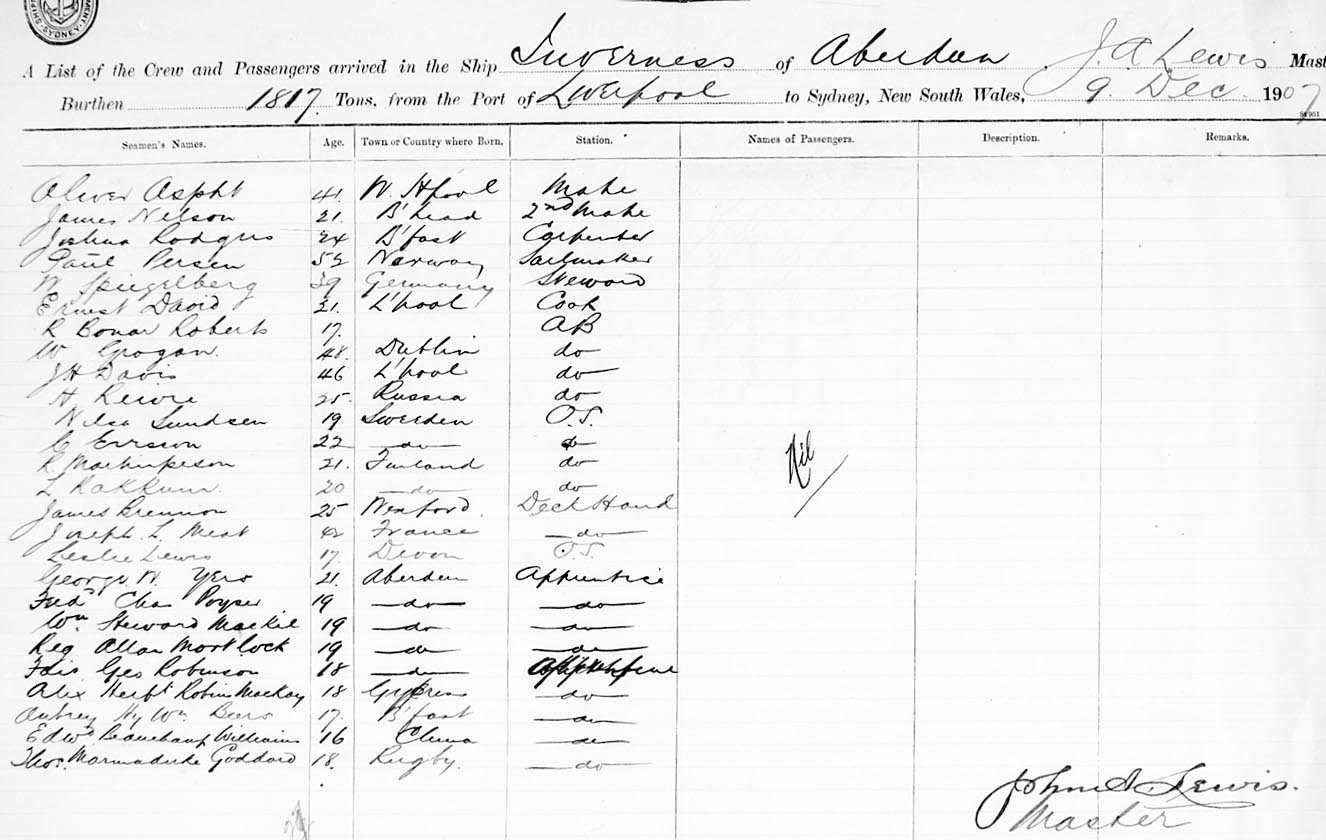 SYDNEY
A List of the Crew and Passengers arrived in the Ship Inverness of Aberdeen J. A. Lewis Mast
Burthen 1817 Tons, from the Port of Liverpool to Sydney, New South Wales, 9. Dec. 1907
Seamen's Names. Age. Town or Country where Born. Station. Names of Passengers. Description. Remarks.
Oliver 41. W. H'pool Mate
James Nelson 21. B'head 2nd Mate
Joshua Rodgers 24 B'fast Carpenter
Paul Persen 52 Norway Sailmaker
W Spiegelberg 39 Germany Steward
Ernest David 21. L'pool Cook
R Bonar Roberts 17. AB
W Grogan. 48. Dublin do
J H Davis 46 L'pool do
H 25. Russia do
Nils Sundsen 19 Sweden O.S.
C 22 do do
Nil
K 21. Finland do
L 20 do do
James Brennon 25 Wexford. Deck Hand
Joseph L. 42 France do
Leslie Lewis 17. Devon O.S.
George W. 21. Aberdeen Apprentice
Fredk Chas Poyser 19 do do
Wm. Steward Mackie 19 do do
Reg Allan Mortlock 19 do do
Geo Robinson 18 do
Alex Herbt Robin Mackay 18 do
Aubrey Hy Wm Beers 17. B'fast do
Edwd Beauchamp Williams 16 China do
Thos. Marmaduke Goddard 18. Rugby. do
John A Lewis.
Master